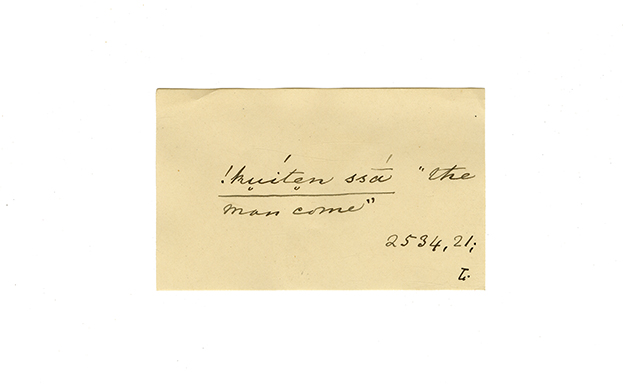 !kụítẹn ssā́ "the
man come"
2534,21;
L.